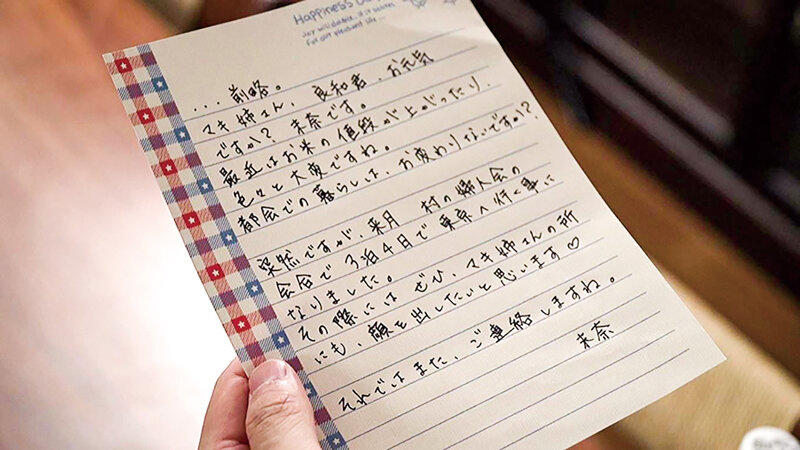 Happiness
...前略。
マキ姉さん、良和君、お元気
ですか? 未奈です。
最近はお米の値段が上がったり、
色々と大変ですね。
都会での暮らしは、お変わりないですか?
突然ですが、来月 村の婦人会の
会合で3泊4日で東京へ行く事に
なりました。
その際にはぜひ、マキ姉さんの所
にも、顔を出したいと思います♡
それではまた、ご連絡しますね。
未奈